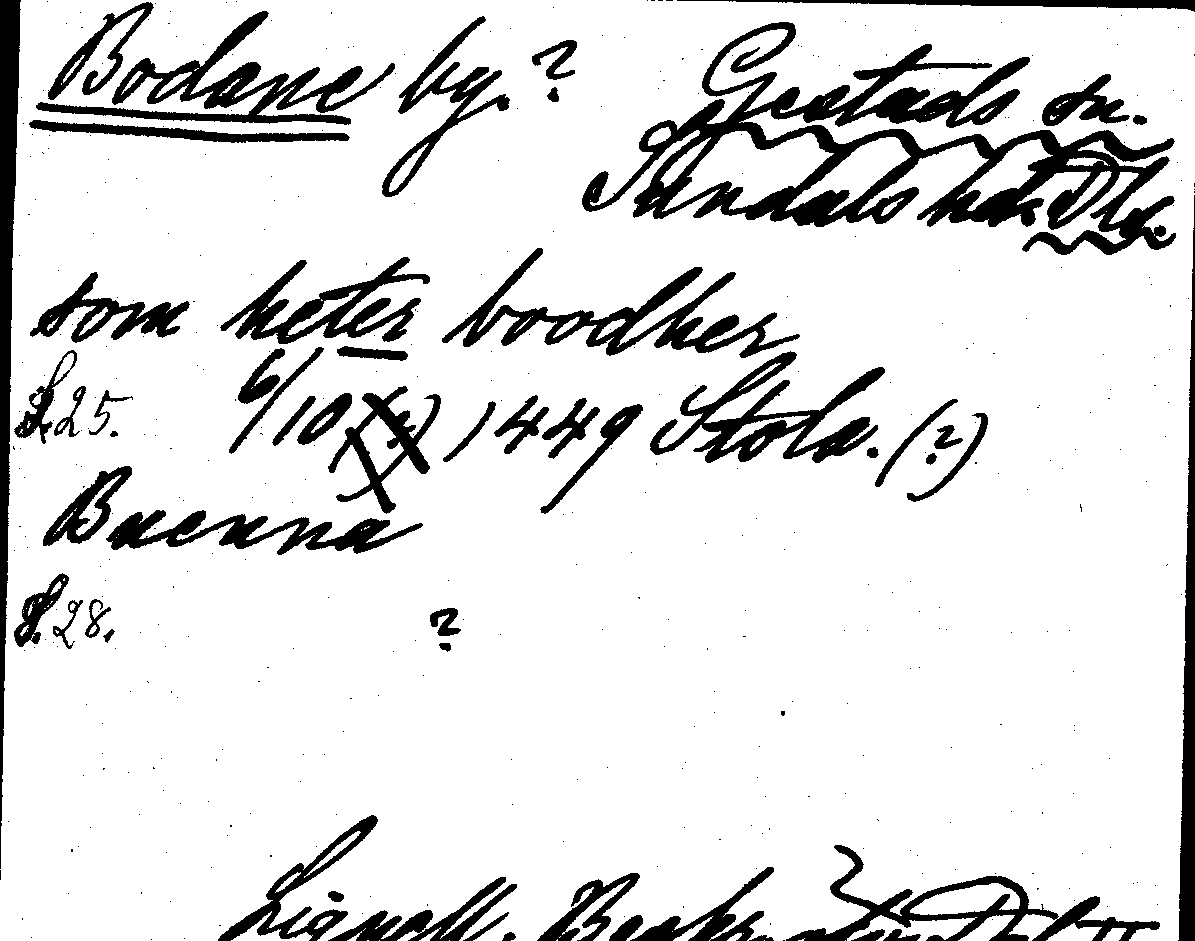 Bodane by.?
Gestads sn.
Sundals hd. Dls.
som heter boodher
S. 25. 6/10 1449 Stola. (?)
Buenna
S. 28. ?
Lignell, Beskr.